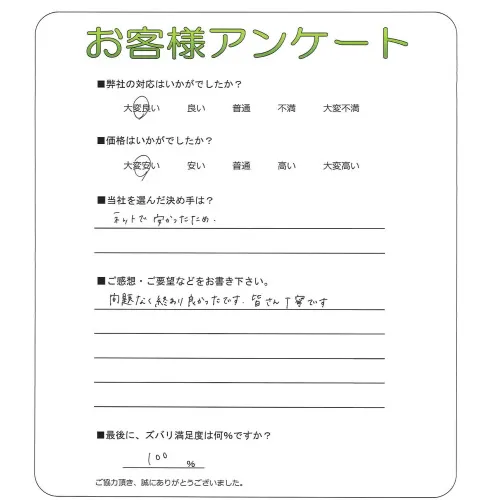 お客様アンケート
■弊社の対応はいかがでしたか？
大変良い 良い 普通 不満 大変不満
■価格はいかがでしたか？
大変安い 安い 普通 高い 大変高い
■当社を選んだ決め手は？
ネットで安かったため.
■ご感想・ご要望などをお書き下さい。
問題なく終わり良かったです. 皆さん丁寧です
■最後に、ズバリ満足度は何%ですか？
100 %
ご協力頂き、誠にありがとうございました。